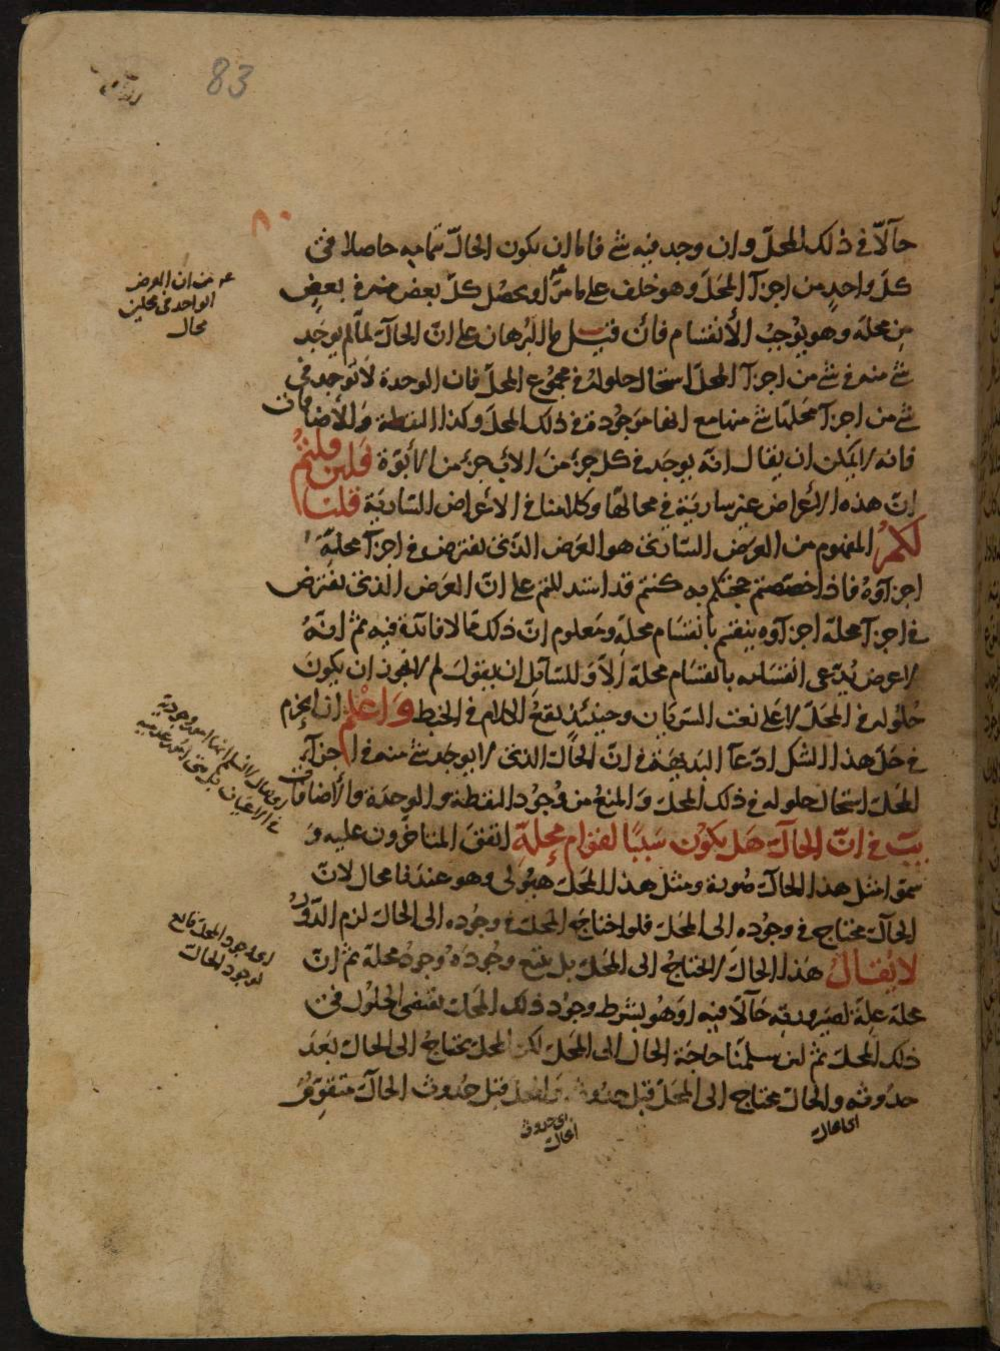 83
٨٠
حالّا فى ذلك المحلّ وان وجد فيه شئ فاما ان يكون الحالّ بتمامه حاصلا فى
كلّ واحدٍ من اجزآ المحَلّ وهو خلف على ما مرّ او يحصُل كلّ بعض منه فى بعضٍ
مِن محلّه وهو يُوجبُ الأنقسام فأن قيل ما البُرهان على انّ الحالّ لمّا لم يوجَد
شئ منه فى شئ من اجزآ المحلّ استحال حلوله فى مجموع المحلّ فان الوحدة لا توجد فى
شئ من اجزآ محَلّها شئ منها مع انها موجُودة فى ذلك المحلّ وكذا النقطة والأضافات
فانه لا يمكن ان يقال انّه يوجَد فى كل جزء من الاب جزء من الأبوّة ولئن قلتمُ
انّ هذه الاعراض غير ساريَة فى محالّها وكلامنا فى الاعراض السّاريَة قلنا
لكمُ المفهوم من العرَض السّارى هو العرَض الذى يفترض فى اجزآ محلّه
اجزاؤهُ فاذا خصّصتم حجّتكم به كنتم قد استدللتم على انّ العرَض الذى يفترض
فى اجزآ محلّه اجزاؤه ينقسم بانقسَام محلّه ومَعلوم انّ ذلك ممّا لا فائدة فيه ثمّ انّهُ
لا عرض يُدّعى انقسَامه بانقسَام محلّه الّا وللسّايل ان يقول لم لا يجوز ان يكونَ
حُلوله فى المحَلّ لا على نعت السّرَيان وحينئذ يقعُ الكلام فى الخبط وَاعْلم ان الجزم
فى حَلّ هذا الشكل ادّعآ البَديهَة فى انّ الحالّ الذى لا يوجد شئ منه فى اجزآ
المحَلّ استحال حلوله فى ذلك المحلّ وَالمنعُ من وُجُود النقطة والوحدَة والأضافات
بيت فى انّ الحالّ هَل يكوُن سَبَبًا لقوَام مَحلّهِ اتفقَ المتاخّرون عليه وَ
سمّوا مثل هذا الحالّ صُورة ومثل هذا المحَلّ هيُولى وهو عندنا محال لانّ
الحالّ محتاج فى وجوُده الى المحَلّ فلو احتاجَ المحَلّ فى وجُوده الى الحالّ لزم الدّورُ
لا يُقالُ هَذا الحالّ لا يحتاجُ الى المحَلّ بل يتبع وجُودَهُ وجودُ محلّه ثمّ انّ
محلّه علّة لصيرورته حَالًا فيه اوَهُو بشرط وجوُد ذلك المحَلّ يقتضى الحلوُل فى
ذلك المحلّ ثمّ لئن سلمنَا حاجة الحال الى المحَلّ لكن المحلّ يحتاجُ الى الحال بَعدَ
حدُوثه والحالّ محتاج الى المحَلّ قبل حدوثه وَالمحل قبل حُدوث الحالّ متقوّمٌ
من ان العرض
الواحد فى محلين
محال
اى وجود المحلّ تابع
لوجود الحالّ
اى الحالّ
اى حدوث
الحالّ